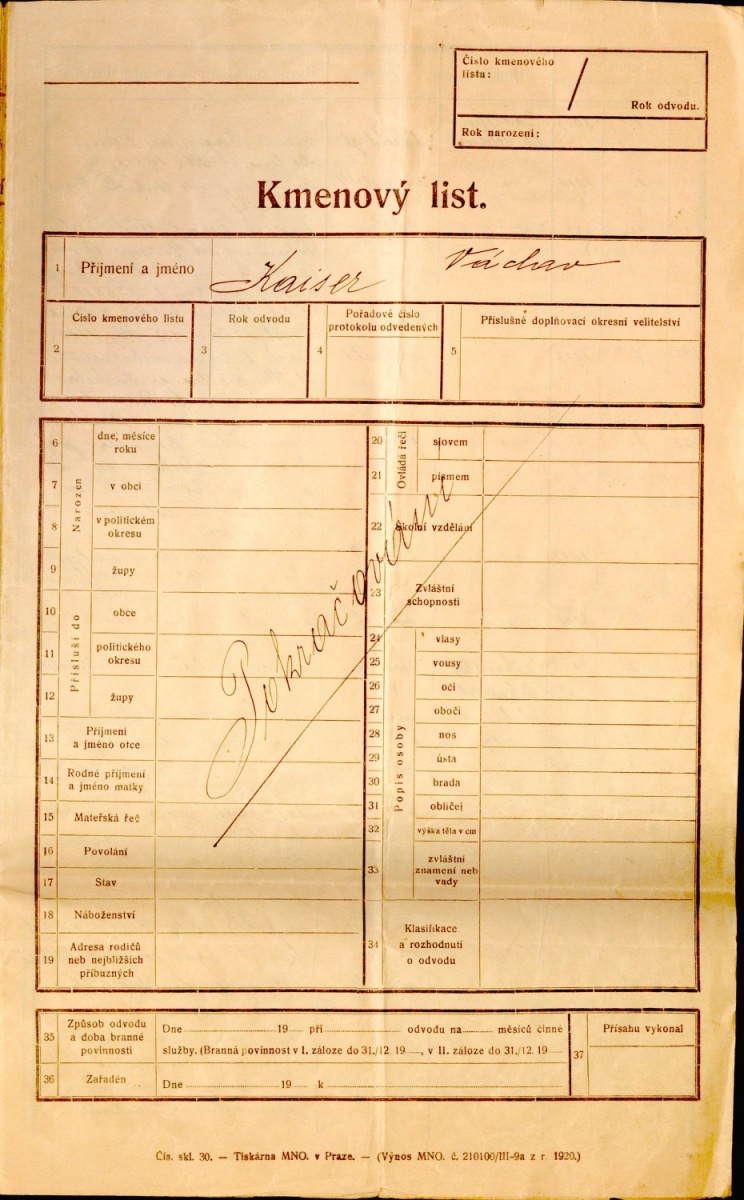 Číslo kmenového
listu:
/
Rok odvodu.
Rok narození:
Kmenový list.
1 Příjmení a jméno Kaiser Václav
2 Číslo kmenového listu
3 Rok odvodu
4 Pořadové číslo
protokolu odvedených
5 Příslušné doplňovací okresní velitelství
Narozen
6 dne, měsíce
roku
7 v obci
8 v politickém
okresu
9 župy
Přísluší do
10 obce
11 politického
okresu
12 župy
13 Příjmení
a jméno otce
14 Rodné příjmení
a jméno matky
15 Mateřská řeč
16 Povolání
17 Stav
18 Náboženství
19 Adresa rodičů
neb nejbližších
příbuzných
Pokračování
Ovládá řeči
20 slovem
21 písmem
22 Školní vzdělání
23 Zvláštní
schopnosti
Popis osoby
24 vlasy
25 vousy
26 oči
27 obočí
28 nos
29 ústa
30 brada
31 obličej
32 výška těla v cm
33 zvláštní
znamení neb
vady
34 Klasifikace
a rozhodnutí
o odvodu
35 Způsob odvodu
a doba branné
povinnosti
Dne 19 při odvodu na měsíců činné
služby. (Branná povinnost v I. záloze do 31./12. 19 , v II. záloze do 31./12. 19
36 Zařaděn
Dne 19 k
37 Přísahu vykonal
Čís. skl. 30. — Tiskárna MNO. v Praze. — (Výnos MNO. č. 210100/III-9a z r. 1920.)